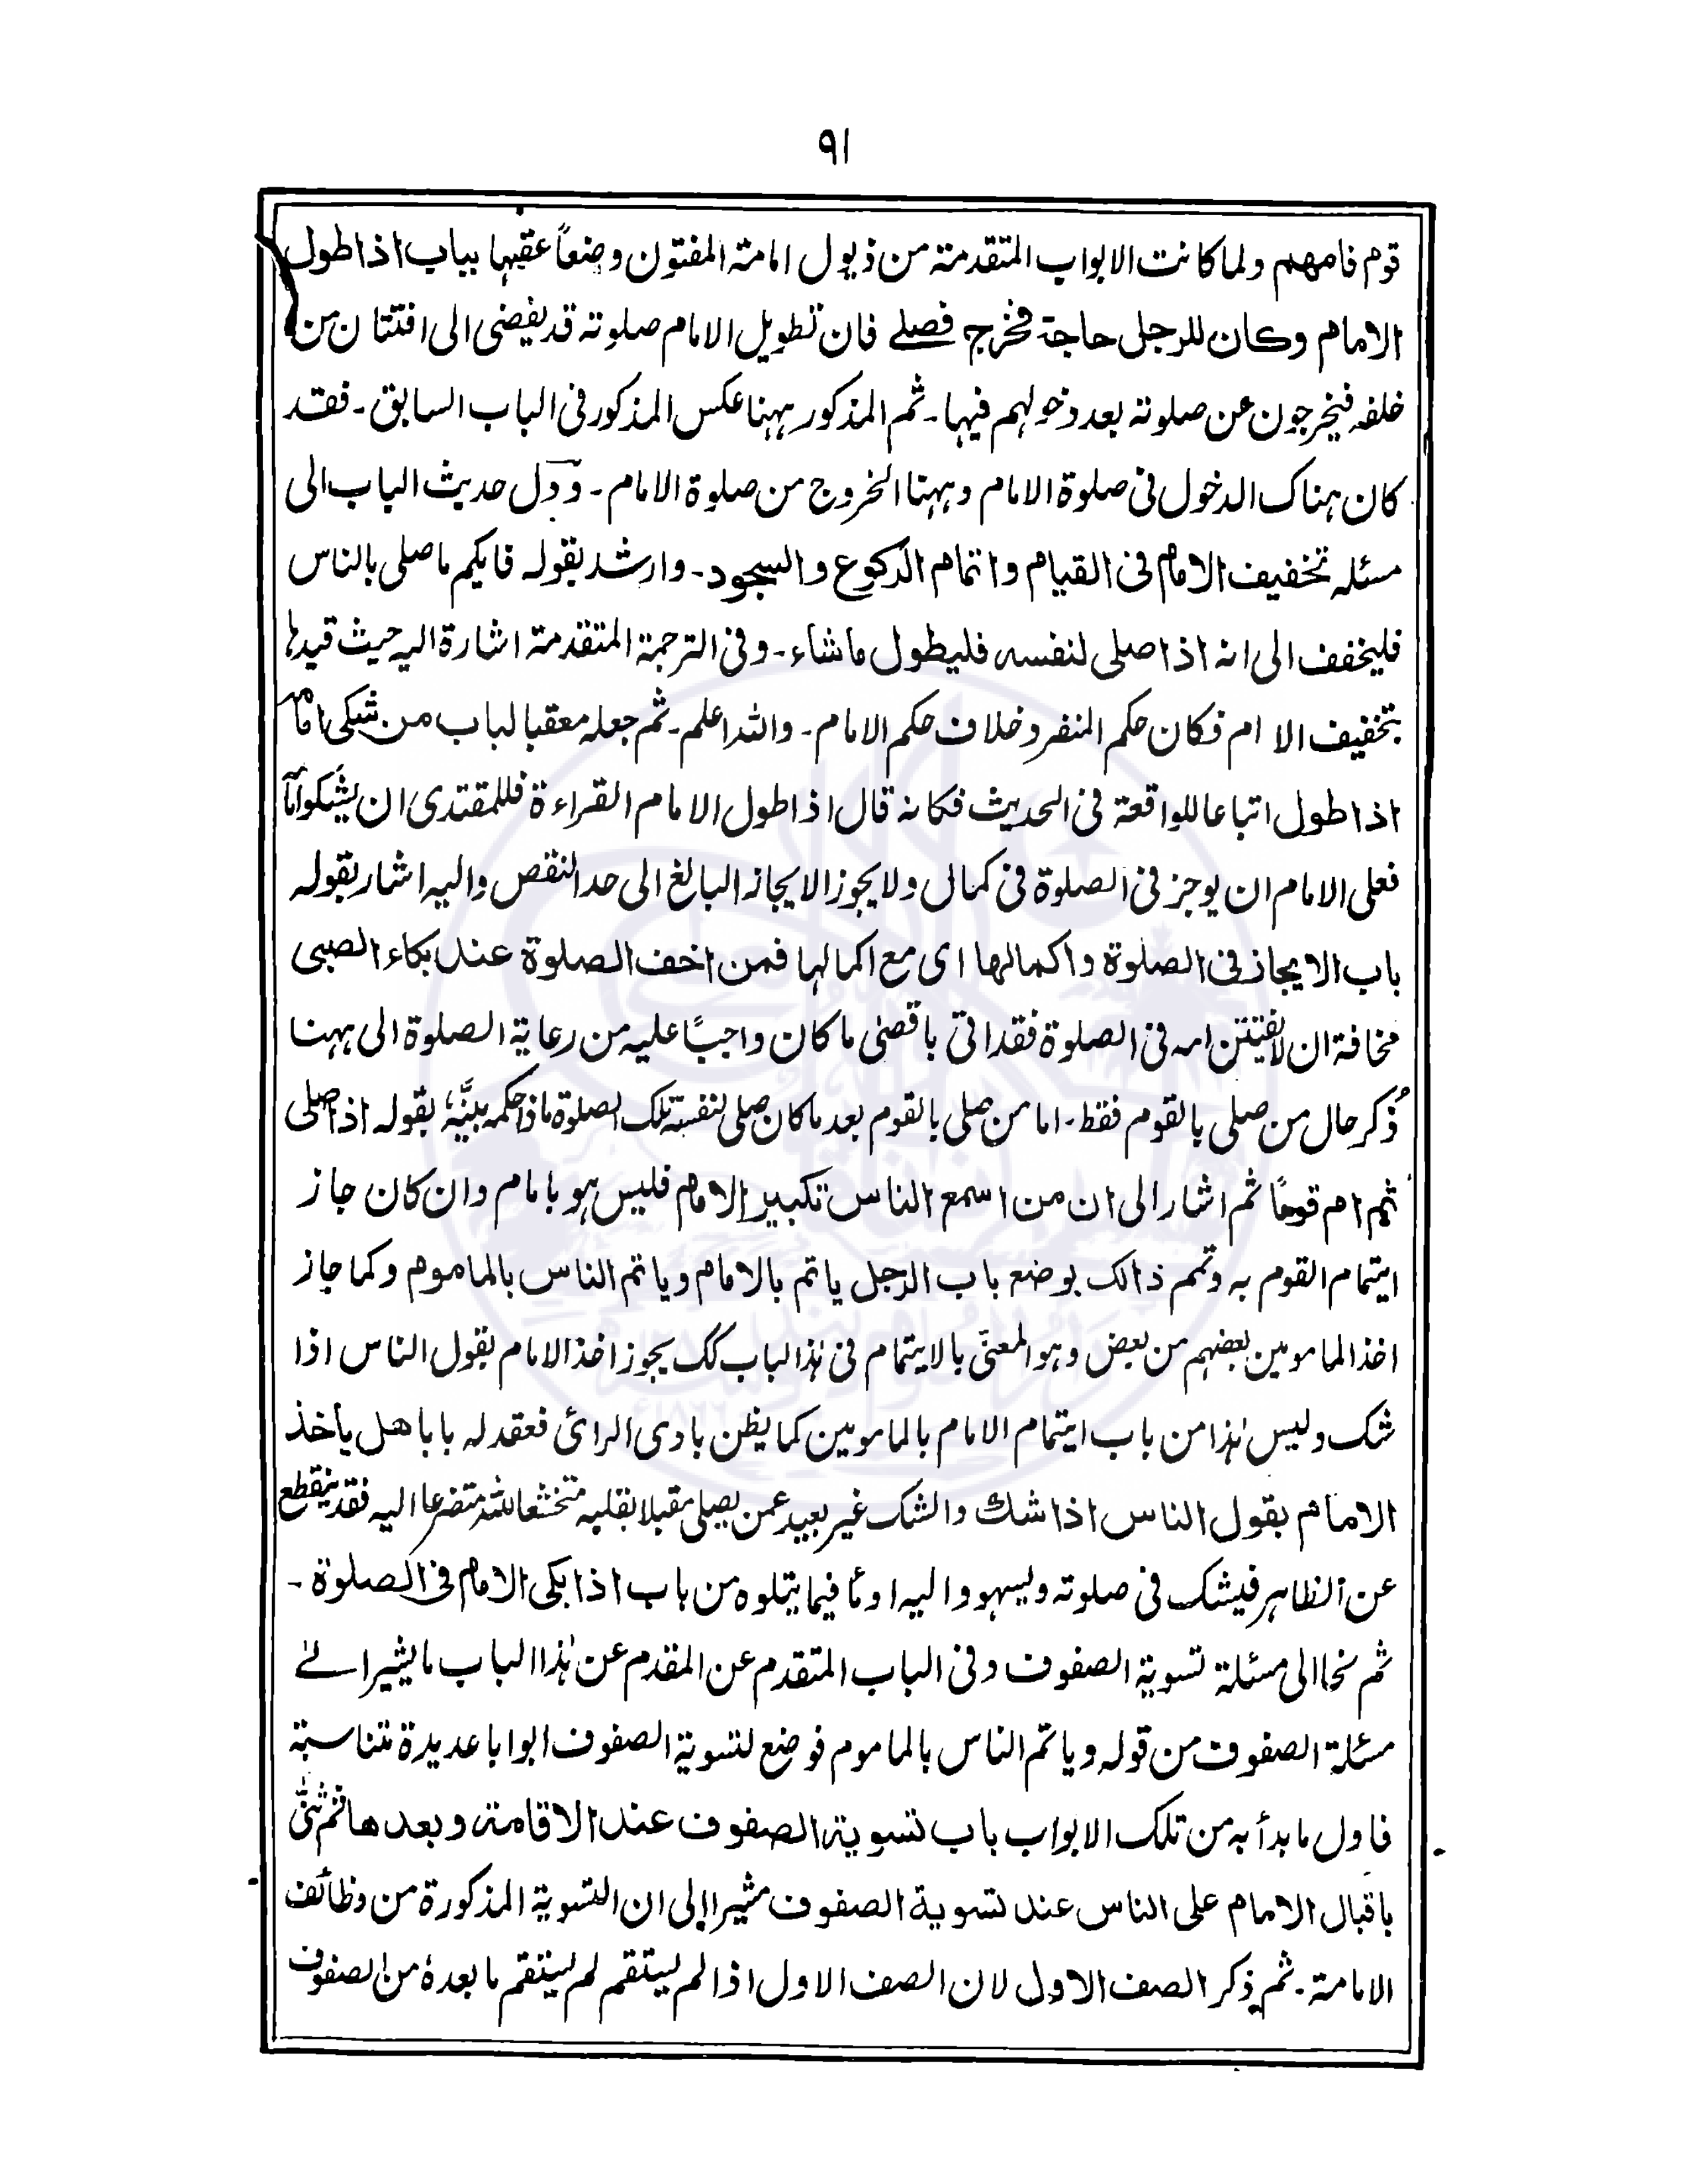 ٩١
قوم فامهم ولما كانت الابواب المتقدمة من ذيول امامة المفتون وضعاً عقبها بباب اذا طول
الامام وكان للرجل حاجة فخرج فصلے فان تطويل الامام صلوته قد يفضى الى افتتان من
خلفه فيخرجون عن صلوته بعد دخولهم فيها۔ ثم المذكور ههنا عكس المذكور فى الباب السابق۔ فقد
كان هناك الدخول فى صلوة الامام وههنا الخروج من صلوة الامام۔ ودل حديث الباب الى
مسئله تخفيف الامام فى القيام واتمام الركوع والسجود۔ وارشد بقوله فايكم ما صلى بالناس
فليخفف الى انه اذا صلى لنفسه فليطول ما شاء۔ وفى الترجمة المتقدمة اشارة اليه حيث قيدها
بتخفيف الا ام فكان حكم المنفرد خلاف حكم الامام۔ والله اعلم۔ ثم جعله معقبا لباب من شكى امامه
اذا طول اتباعا للواقعة فى الحديث فكانه قال اذا طول الامام القراءة فللمقتدى ان يشكو امامه
فعلى الامام ان يوجز فى الصلوة فى كمال ولا يجوز الايجاز البالغ الى حد النقص واليه اشار بقوله
باب الايجاز فى الصلوة واكمالها اى مع اكمالها فمن اخف الصلوة عند بكاء الصبى
مخافة ان لا يفتتن امه فى الصلوة فقد اتى باقصىٰ ما كان واجبًا عليه من رعاية الصلوة الى ههنا
ذُكر حال من صلى بالقوم فقط۔ اما من صلى بالقوم بعد ما كان صلى لنفسه تلك الصلوة ماذا حكمه بيَّنهٗ بقوله اذا صلى
ثم ام قومًا ثم اشار الى ان من اسمع الناس تكبير الامام فليس هو بامام وان كان جاز
ايتمام القوم به وتمم ذالك بوضع باب الرجل ياتم بالامام وياتم الناس بالماموم وكما جاز
اخذ المامومين بعضهم من بعض وهو المعنىّ بالايتمام فى هذا الباب كك يجوز اخذ الامام بقول الناس اذا
شك وليس هٰذا من باب ايتمام الامام بالمامومين كما يظن بادى الرائى فعقد له بابا هل يأخذ
الامام بقول الناس اذا شك والشك غير بعيد عمن يصلى مقبلا بقلبه متخشعا لله متضرعا اليه فقد ينقطع
عن الظاهر فيشك فى صلوته ويسهو واليه اومأ فيما يتلوه من باب اذا بكى الامام فى الصلوة۔
ثم نحا الى مسئلة تسوية الصفوف وفى الباب المتقدم عن المقدم عن هٰذا الباب ما يشير الىٰ
مسئلة الصفوف من قوله وياتم الناس بالماموم فوضع لتسوية الصفوف ابوابا عديدة متناسبة
فاول ما بدأ به من تلك الابواب باب تسوية الصفوف عند الاقامة وبعدها ثم ثنّٰى
باقبال الامام على الناس عند تسوية الصفوف مشيرا إلى ان التسوية المذكورة من وظائف
الامامة۔ ثم ذكر الصف الاول لان الصف الاول اذا لم يستقم لم يستقم ما بعده من الصفوف